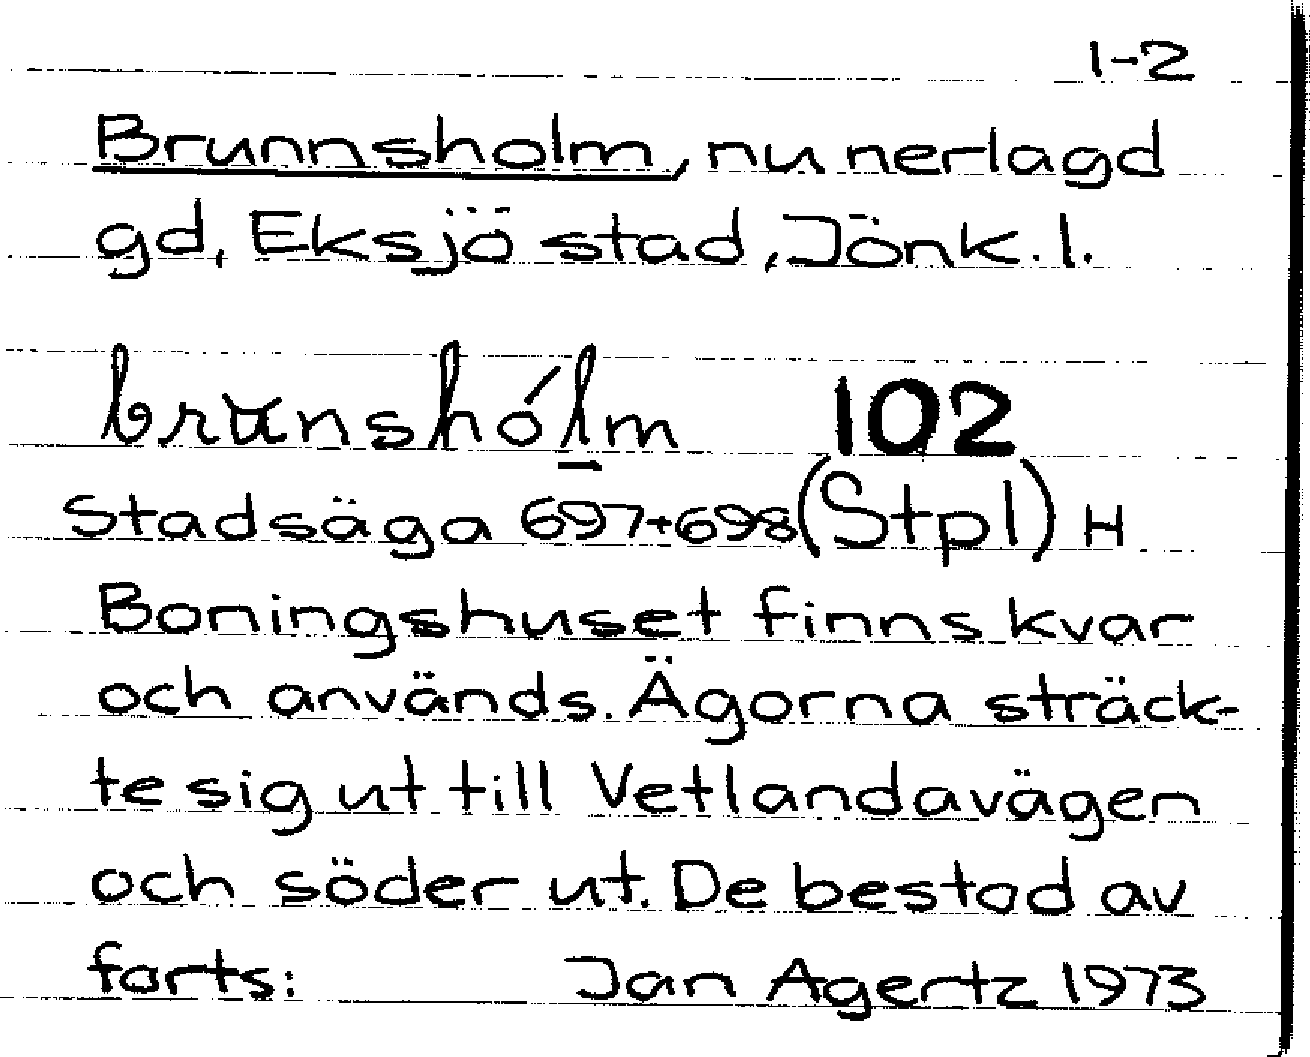 1-2
Brunnsholm, nu nerlagd
gd, Eksjö stad, Jönk. l.
brunshólm 102
Stadsäga 697+698 (Stpl) H
Boningshuset finns kvar
och används. Ägorna sträck-
te sig ut till Vetlandavägen
och söder ut. De bestod av
forts: Jan Agertz 1973